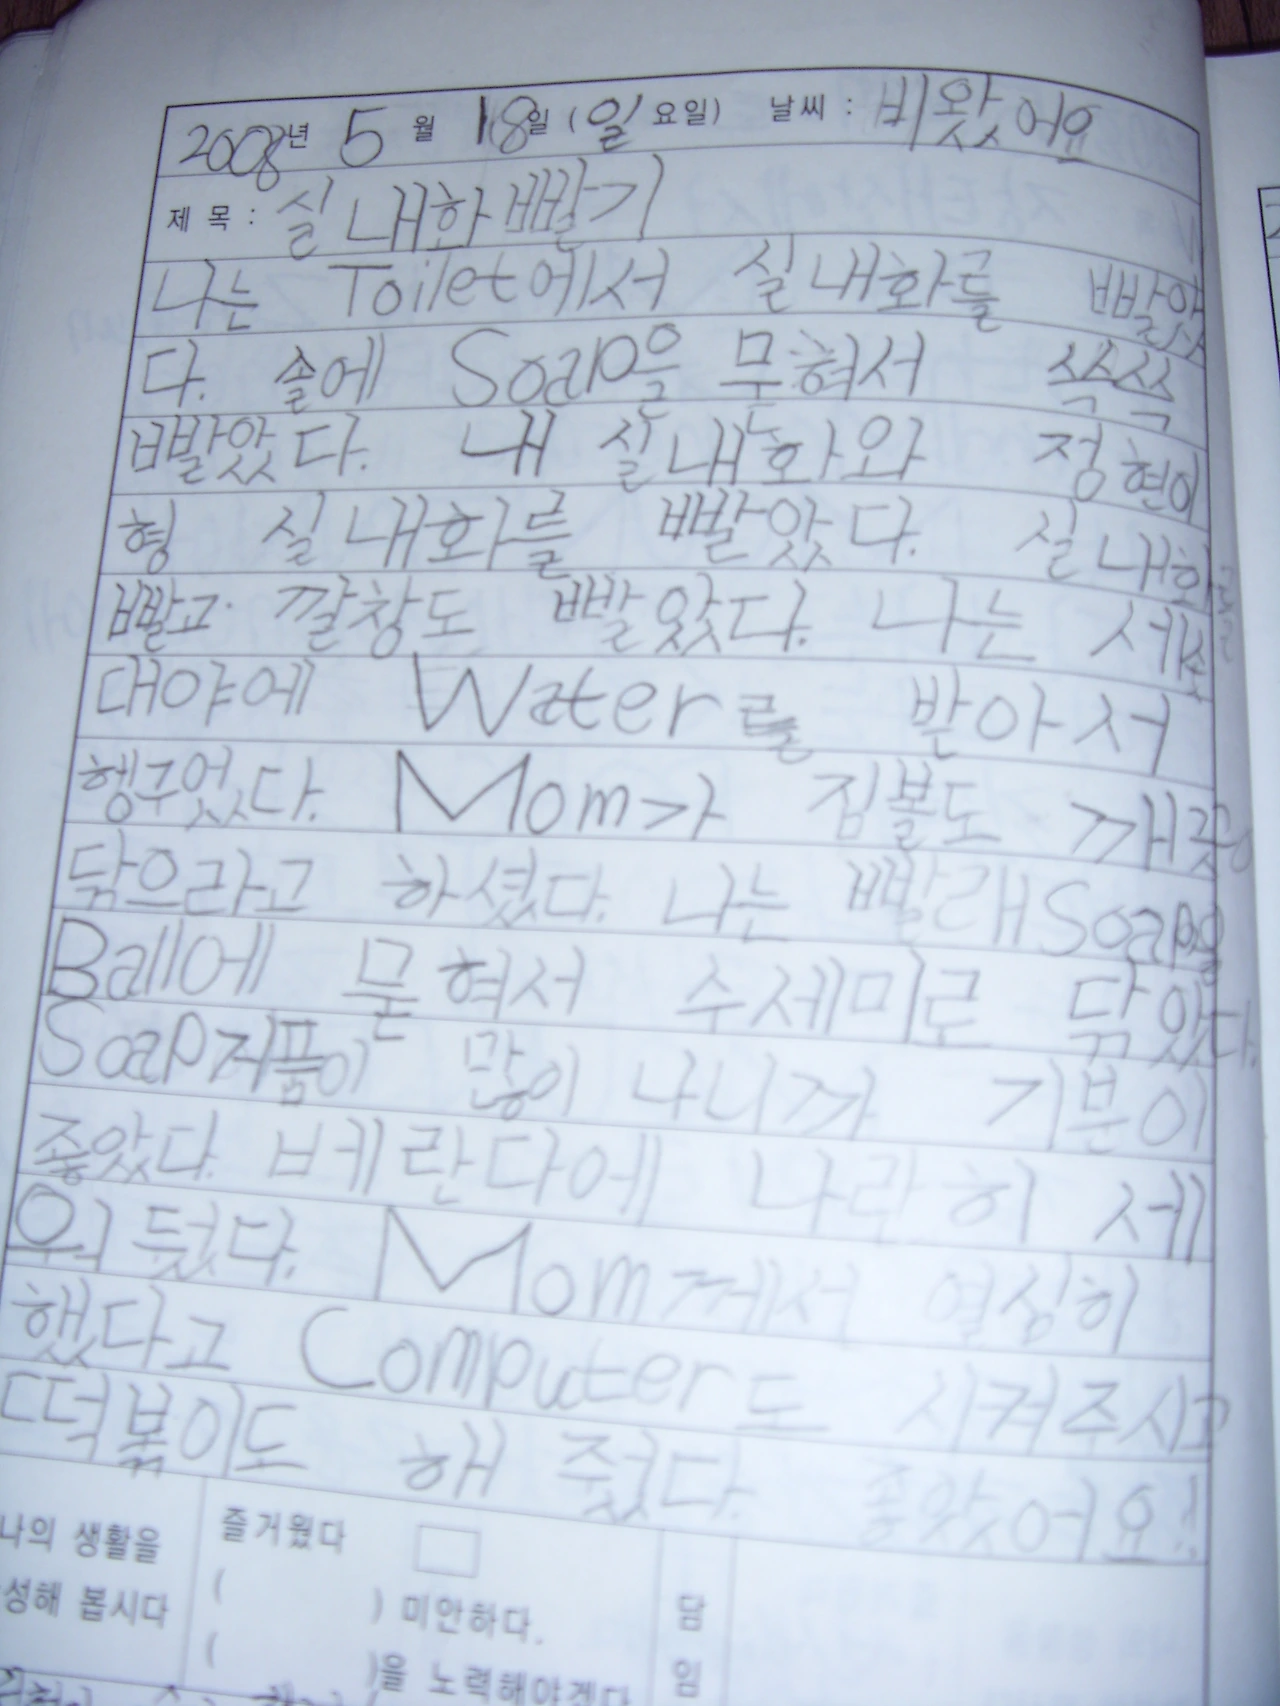 2008년 5월 18일 (일요일) 날씨 : 비왔어요
제 목 : 실내화빨기
나는 Toilet에서 실내화를 빨았
다. 솔에 Soap을 무혀서 쓱쓱
빨았다. 내 실내화와 정현이
형 실내화를 빨았다. 실내화를
빨고 깔창도 빨았다. 나는
대야에 Water를 받아서
헹구었다. Mom가 짐볼도
닦으라고 하셨다. 나는 빨래Soap을
Ball에 묻혀서 수세미로 닦았다.
Soap거품이 많이 나니까 기분이
좋았다. 베란다에 나란히 세
워 뒀다. Mom께서 열심히
했다고 Computer도 시켜주시고
떡볶이도 해 줬다. 좋았어요!
나의 생활을 즐거웠다
성해 봅시다 ( ) 미안하다. 담
( )을 노력해야겠다 임